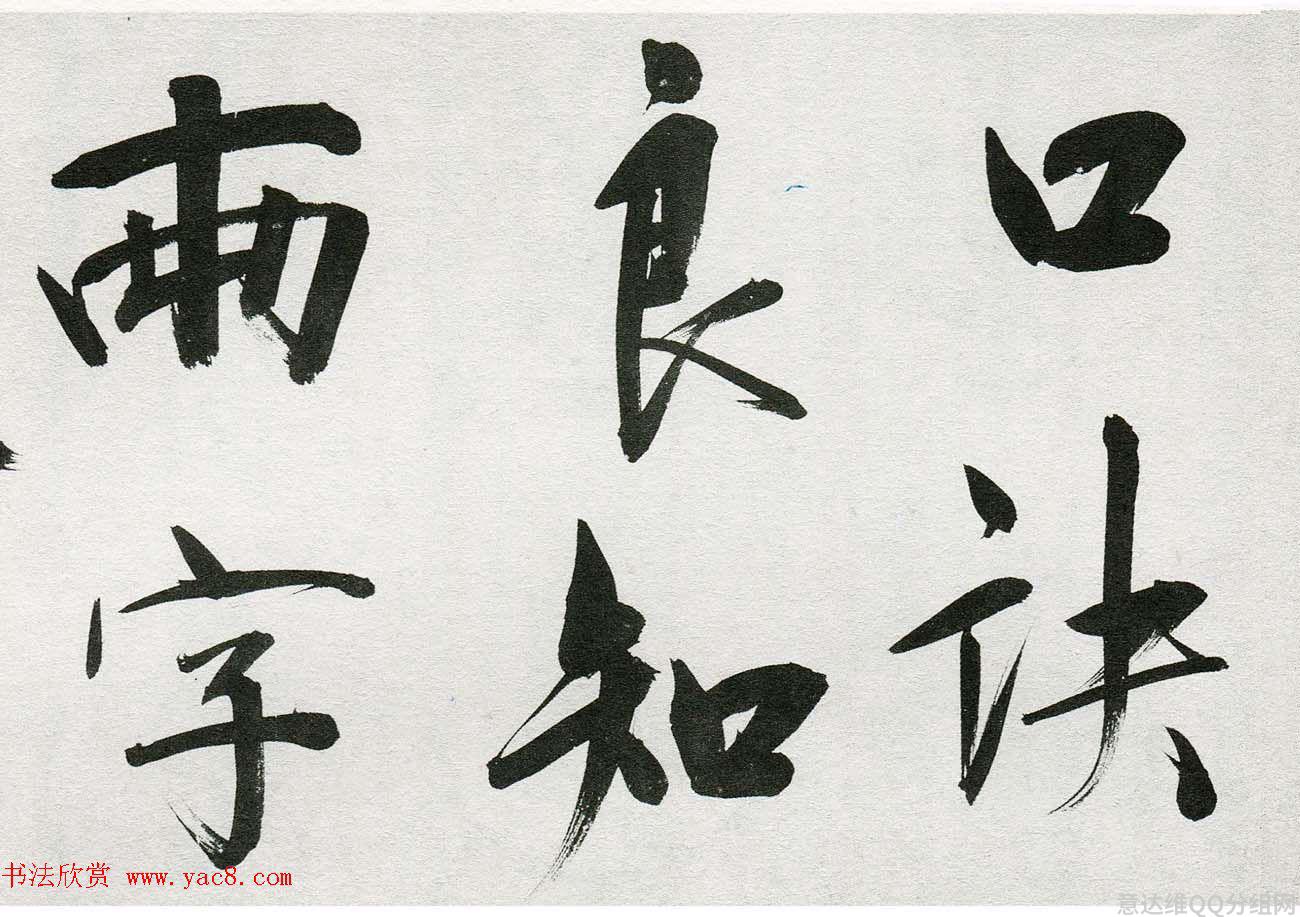 口訣
良知
兩字
书法欣赏 www.yac8.com
意达维QQ分组网